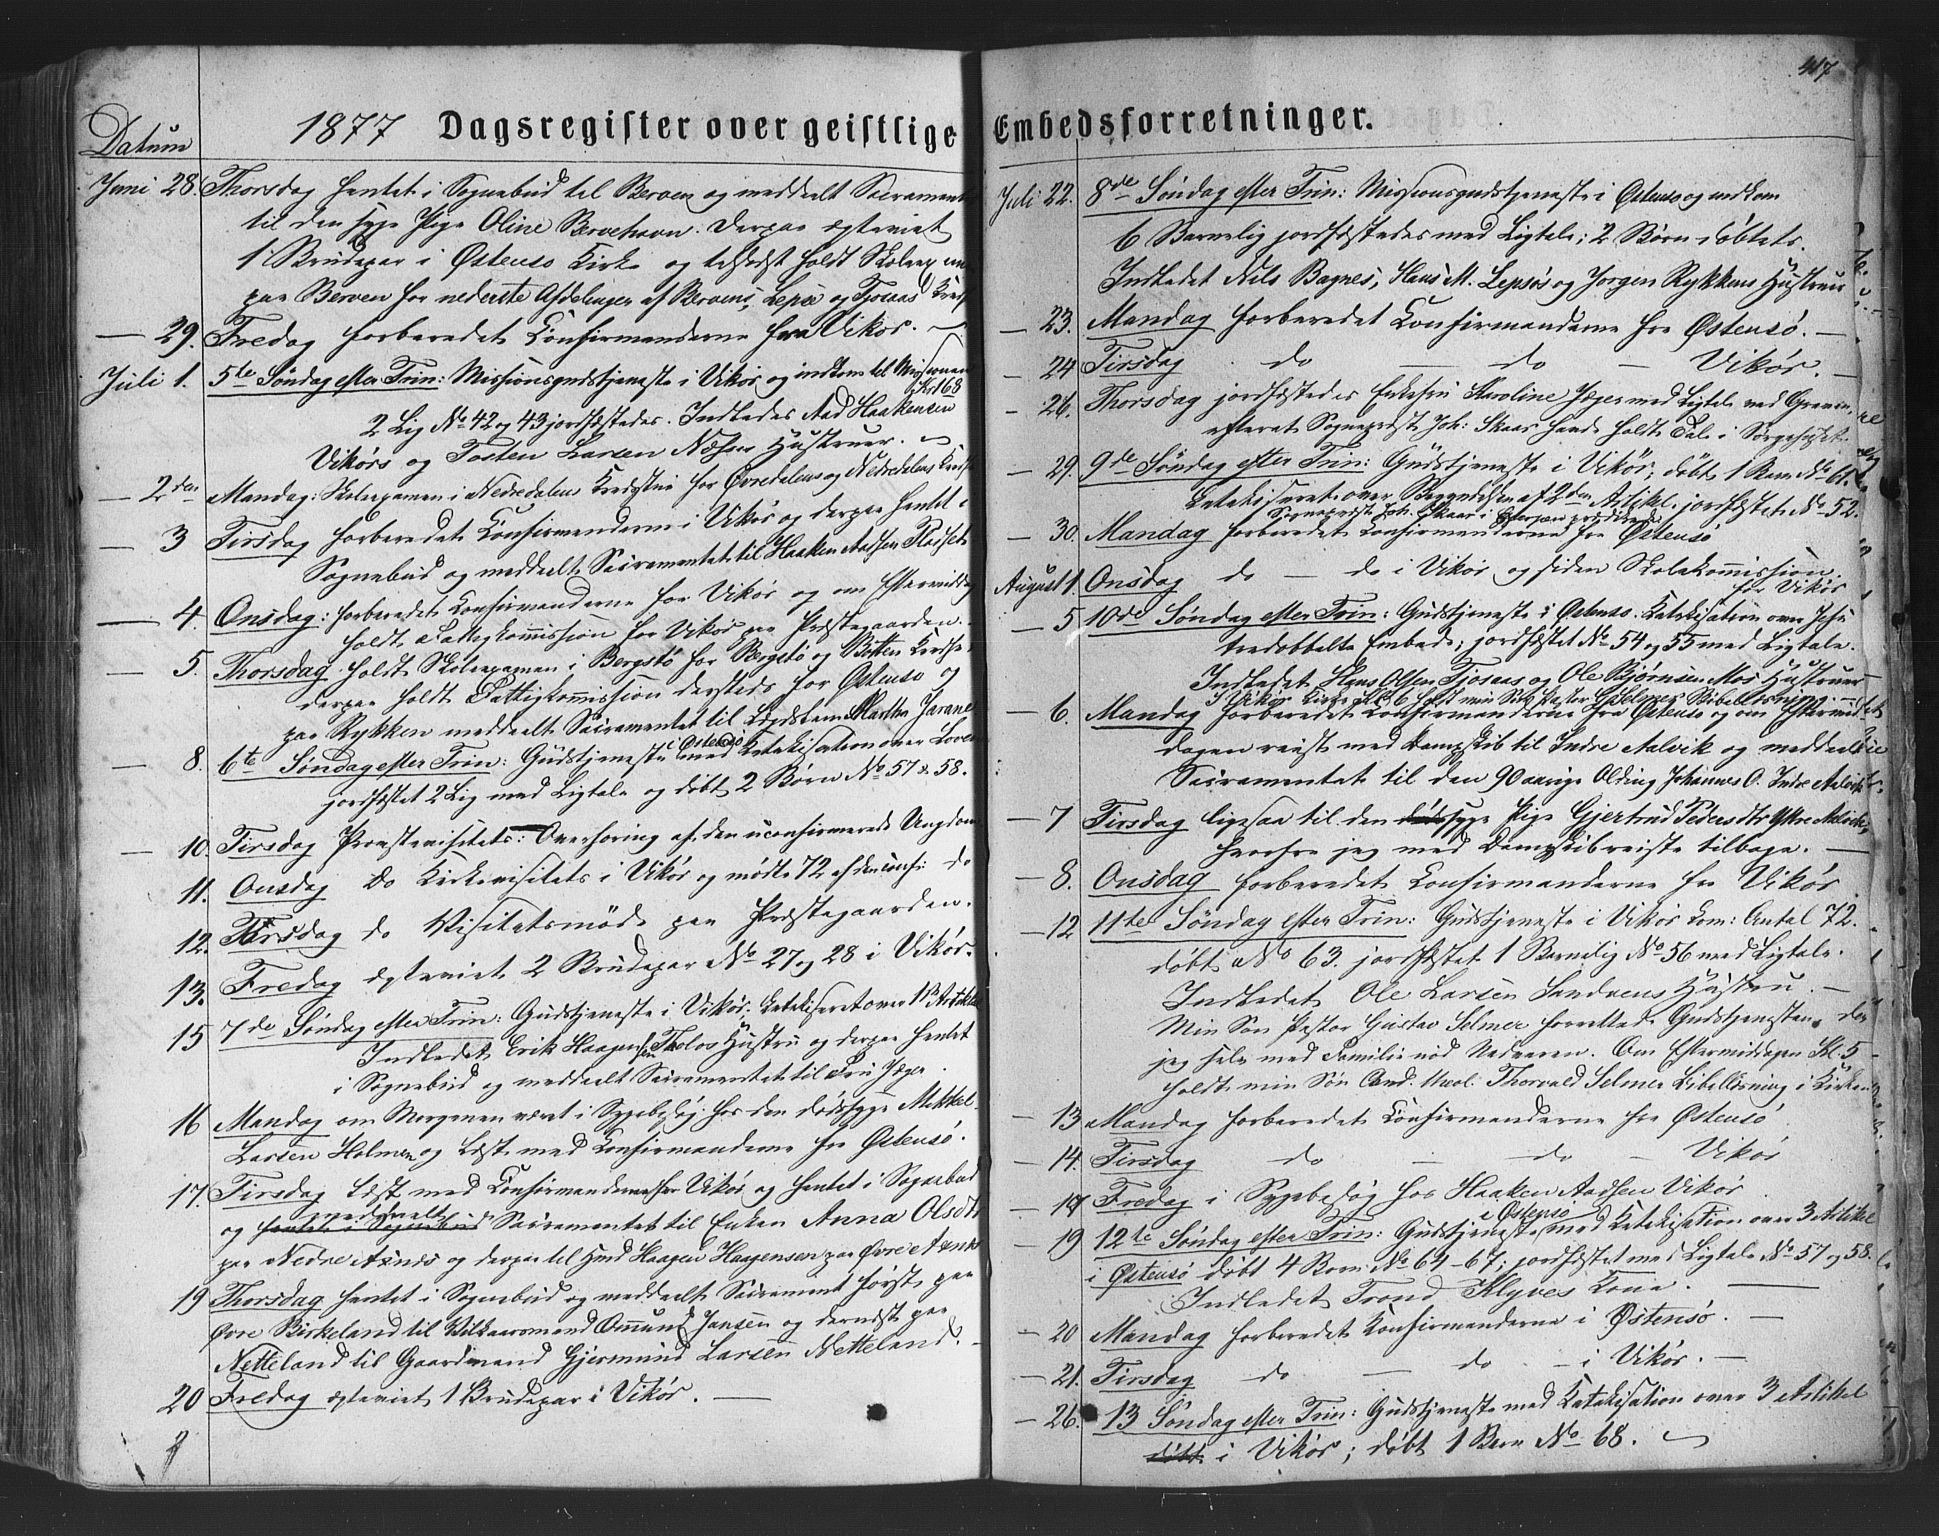 Datum
1877 Dagsregister over geistlige
Juni 28. Thorsdag hentet i Sognebud til Berven og meddeelt Sacramentet
til den syge Pige Oline Bervehavn. Derpaa egteviet
1 Brudepar i Østensø Kirke og holdt Skole
paa Berven for nederste Afdelinger af Bervens, Lepsø og Tjoraas Kreds
— 29. Fredag forberedet Confirmanderne fra Vikør.
Juli 1. 5te Søndag efter Trin: Missionsgudstjeneste i Vikør og indkom til Missionen
Kr 168
2 Lig No 42 og 43 jordfæstedes. Indledes Aad Haakensen
Vikørs og Tosten Larsen Hustruer.
— 2den Mandag: Skoleexamen i Nedredalens Kredsstue for Øvredalens og Nedredalens Kredse
— 3 Tirsdag forberedet Confirmanderne i Vikør og derpaa hentet i
Sognebud og meddeelt Sacramentet til Haaken Aadsen
— 4. Onsdag: forberedet Confirmanderne for Vikør og om Eftermiddag
holdt Fattigkommission for Vikør paa Præstegaarden.
— 5. Thorsdag holdt Skoleexamen i Bergstø for Bergstø og Botten Kredse,
derpaa holdt Fattigkommission dersteds for Østensø og
paa Rykken meddeelt Sacramentet til Martha
i Østensø
— 8. 6te Søndag efter Trin: Gudstjeneste med Katekisation over Loven
jordfæstet 2 Lig med Ligtale og døbt 2 Børn No 57 & 58.
— 10. Tirsdag Provstevisitats: Overhøring af den uconfirmerede Ungdom
11. Onsdag do Kirkevisitats i Vikør og mødte 72 af den conf: do
12. Torsdag do Visitatsmøde paa Præstegaarden.
13. Fredag egteviet 2 Brudepar No 27 og 28 i Vikør.
15 7de Søndag efter Trin: Gudstjeneste i Vikør; katekiseret over 1ste Artikkel
Indledet Erik Haagensen Tholos Hustru og derpaa hentet
i Sognebud og meddeelt Sacramentet til Fru Jæger.
16 Mandag om Morgenen været i Sygebesøg hos den dødssyge Mikkel
Larsen Holmen og læst med Confirmanderne fra Østensø.
17. Tirsdag læst med Confirmanderne fra Vikør og hentet i Sognebud
meddeelt
og hentet i Sognebud Sacramentet til Enken Anna Olsdtr
paa Nedre Axnes og derpaa til Haagen Haagensen paa Øvre Axnes
19 Thorsdag hentet i Sognebud og meddeelt Sacrament først paa
Øvre Birkeland til Vilkaarsmand Omund Jansen og dernæst paa
Netteland til Gaardmand Gjermund Larsen Netteland.
20 Fredag egteviet 1 Brudepar i Vikør.
417
Embedsforretninger.
Juli 22. 8de Søndag efter Trin: Missionsgudstjeneste i Østensø og indkom
6 Barnelig jordfæstedes med Ligtale; 2 Børn døbtes.
Indledet Nils Bagnes, Hans M. Lepsøs og Jørgen Rykkens Hustruer
— 23. Mandag forberedet Confirmanderne fra Østensø.
— 24 Tirsdag do — do — Vikør.
— 26. Thorsdag jordfæstedes Enkefru Karoline Jæger med Ligtale ved Graven,
efterat Sognepræst Joh: Skaar havde holdt Tale i Sørgehuset.
— 29. 9de Søndag efter Trin: Gudstjeneste i Vikør, døbt 1 Barn No 61.
Katekiseret over Begyndelsen af 2den Artikel. jordfæstet No 52.
Sognepræst Joh. Skaar i prædikede
— 30. Mandag forberedet Confirmanderne fra Østensø
August 1. Onsdag do — do i Vikør og siden Skolekommission
for Vikør
— 5 10de Søndag efter Trin: Gudstjeneste i Østensø. Katekisation over Jesu
tredobbelte Embede; jordfæstet No 54 og 55 med Ligtale.
Indledet Hans Olsen Tjoraas og Ole Bjørnsen Mos Hustruer
I Vikør Kirke Kl. 6 holdt min Søn Pastor G. Selmer Bibellæsning.
— 6. Mandag forberedet Confirmanderne fra Østensø og om Eftermid-
dagen reist med Dampskib til Indre Aalvik og meddeelt
Sacramentet til den 90 aarige Olding Johannes O. Indre Aalvik
— 7 Tirsdag ligesaa til den døds syge Pige Gjertrud Pedersdtr Ytre Aalvik,
hvorfra jeg med Dampskib reiste tilbage.
— 8. Onsdag forberedet Confirmanderne fra Vikør
— 12 11te Søndag efter Trin: Gudstjeneste i Vikør kom: Antal 72.
døbt No 63. jordfæstet 1 Barnelig No 56 med Ligtale.
Indledet Ole Larsen Sandvens Hustru.
Min Søn Pastor Gustav Selmer forrettede Gudstjenesten, da
jeg selv med Familie nød Nadveren. Om Eftermiddagen Kl. 5
holdt min Søn Cand. theol. Thorvald Selmer Bibellæsning i Kirken
— 13 Mandag forberedet Confirmanderne fra Østensø
— 14. Tirsdag do — do — Vikør
— 17 Fredag i Sygebesøg hos Haaken Aadsen Vikør
i Østensø
— 19 12te Søndag efter Trin: Gudstjeneste med Katekisation over 3 Artikel
i Østensø døbt 4 Børn No 64–67; jordfæstet med Ligtale No 57 og 58.
Indledet Trond Klyves Kone.
— 20 Mandag forberedet Confirmanderne i Østensø.
— 21. Tirsdag do — do — i Vikør.
— 26. 13 Søndag efter Trin: Gudstjeneste med Katekisation over 3 Artikel
døbt i Vikør; døbt 1 Barn No 68.